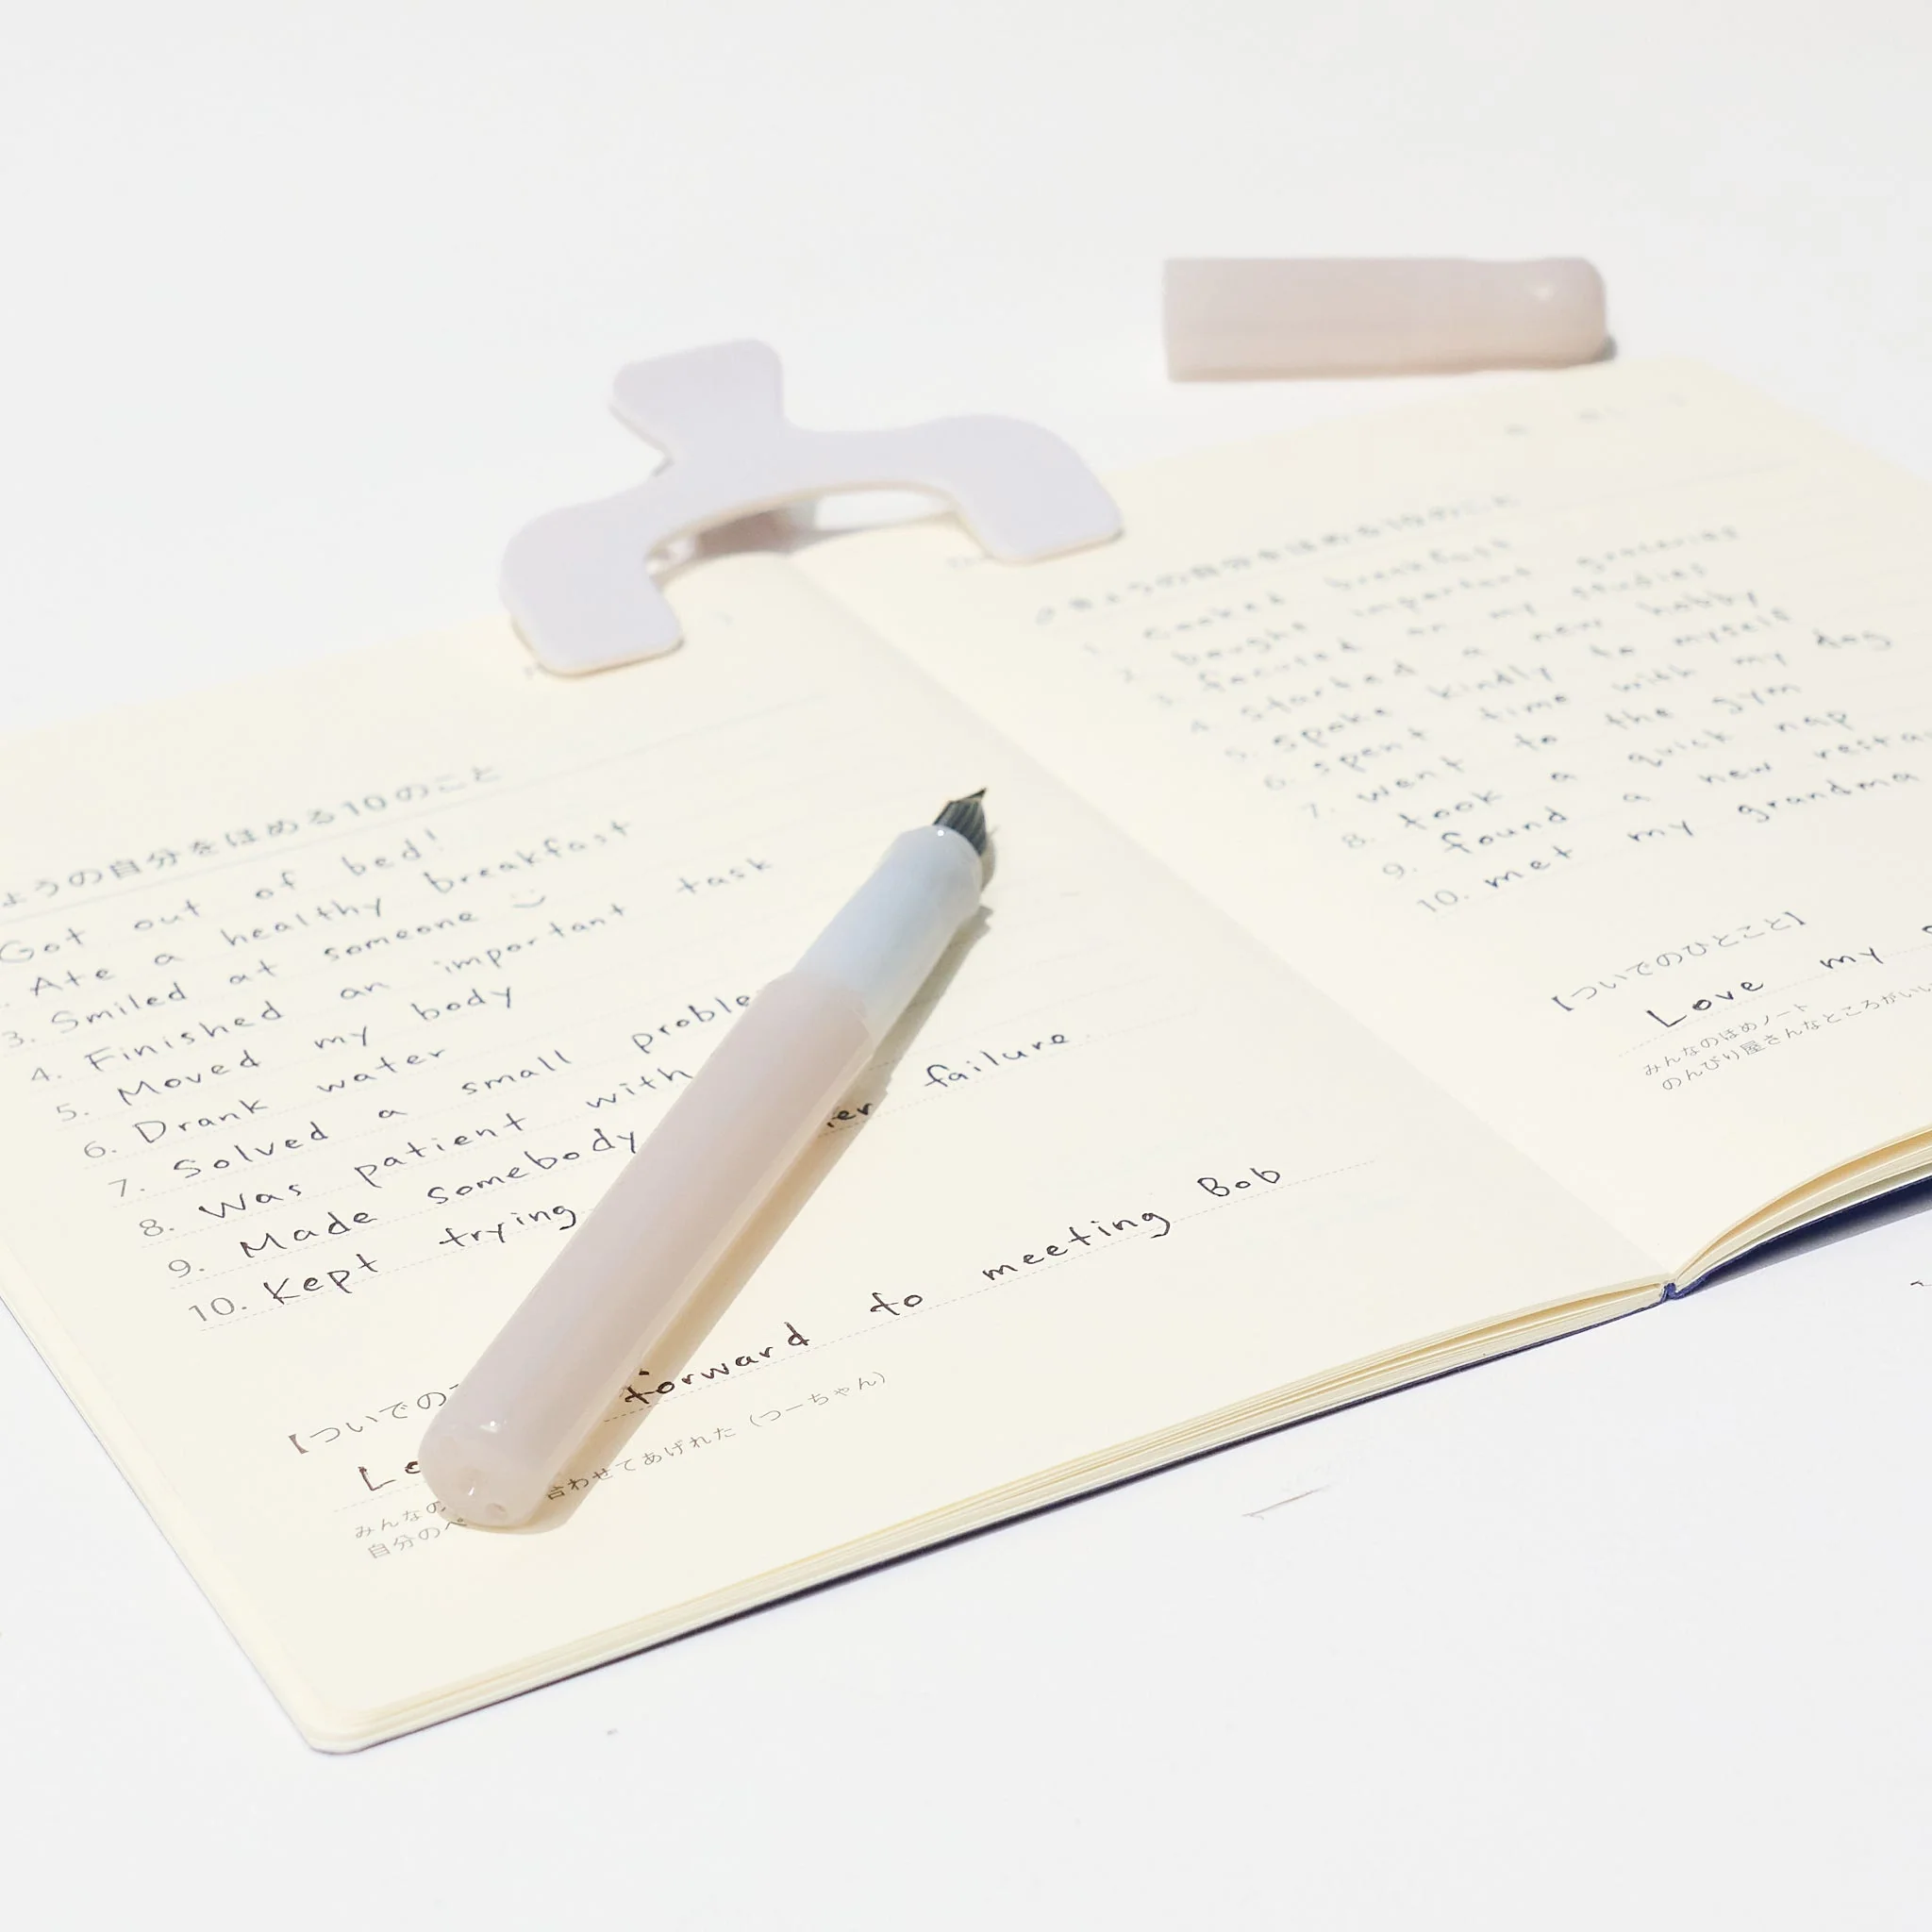 ようの自分をほめる10のこと
Got out of bed!
Ate a healthy breakfast
3. Smiled at someone
4. Finished an important task
5. Moved my body
6. Drank water
7. Solved a small proble
8. Was patient with
9. Made somebody
10. Kept trying er failure
【ついでの
forward to meeting Bob
みんなの 合わせてあげれた(つーちゃん)
自分のペ
きょうの自分をほめる10のこと
1. cooked breakfast
2. bought important groceries
3. focused on my studies
4. started a new hobby
5. spoke kindly to myself
6. spent time with my dog
7. went to the gym
8. took a quick nap
9. found a new resta
10. met my grandma
【ついでのひとこと】
Love my
みんなのほめノート
のんびり屋さんなところがいい